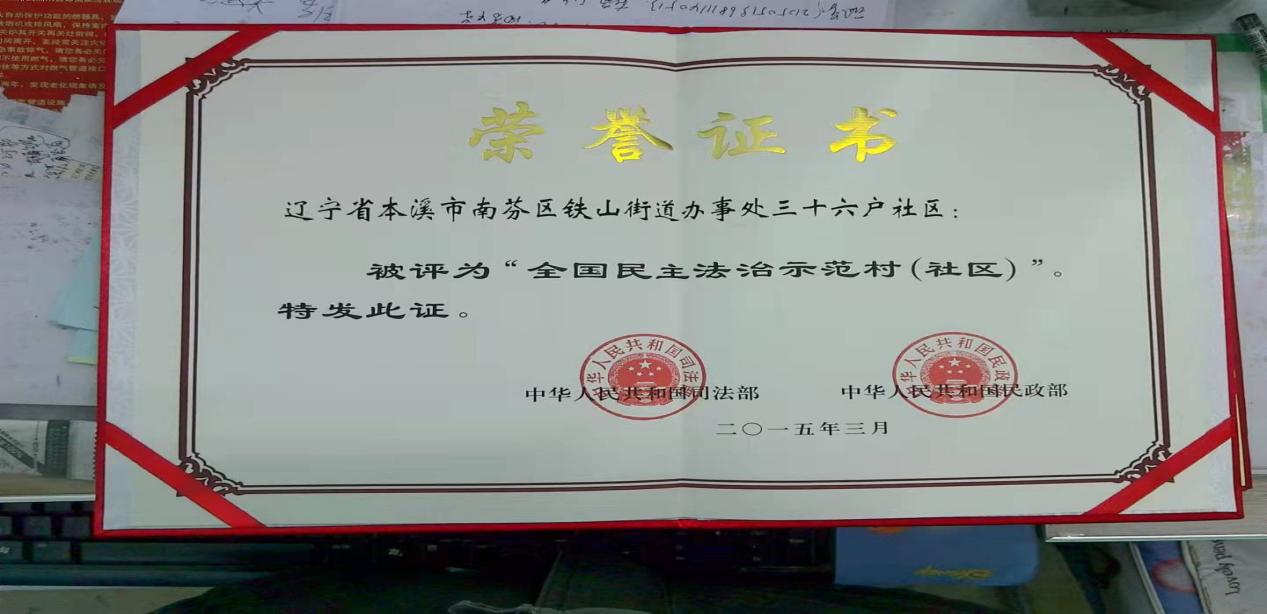 荣誉证书
辽宁省本溪市南芬区铁山街道办事处三十六户社区：
被评为“全国民主法治示范村(社区)”。
特发此证。
中华人民共和国司法部
中华人民共和国民政部
二〇一五年三月
Disney
Lovely